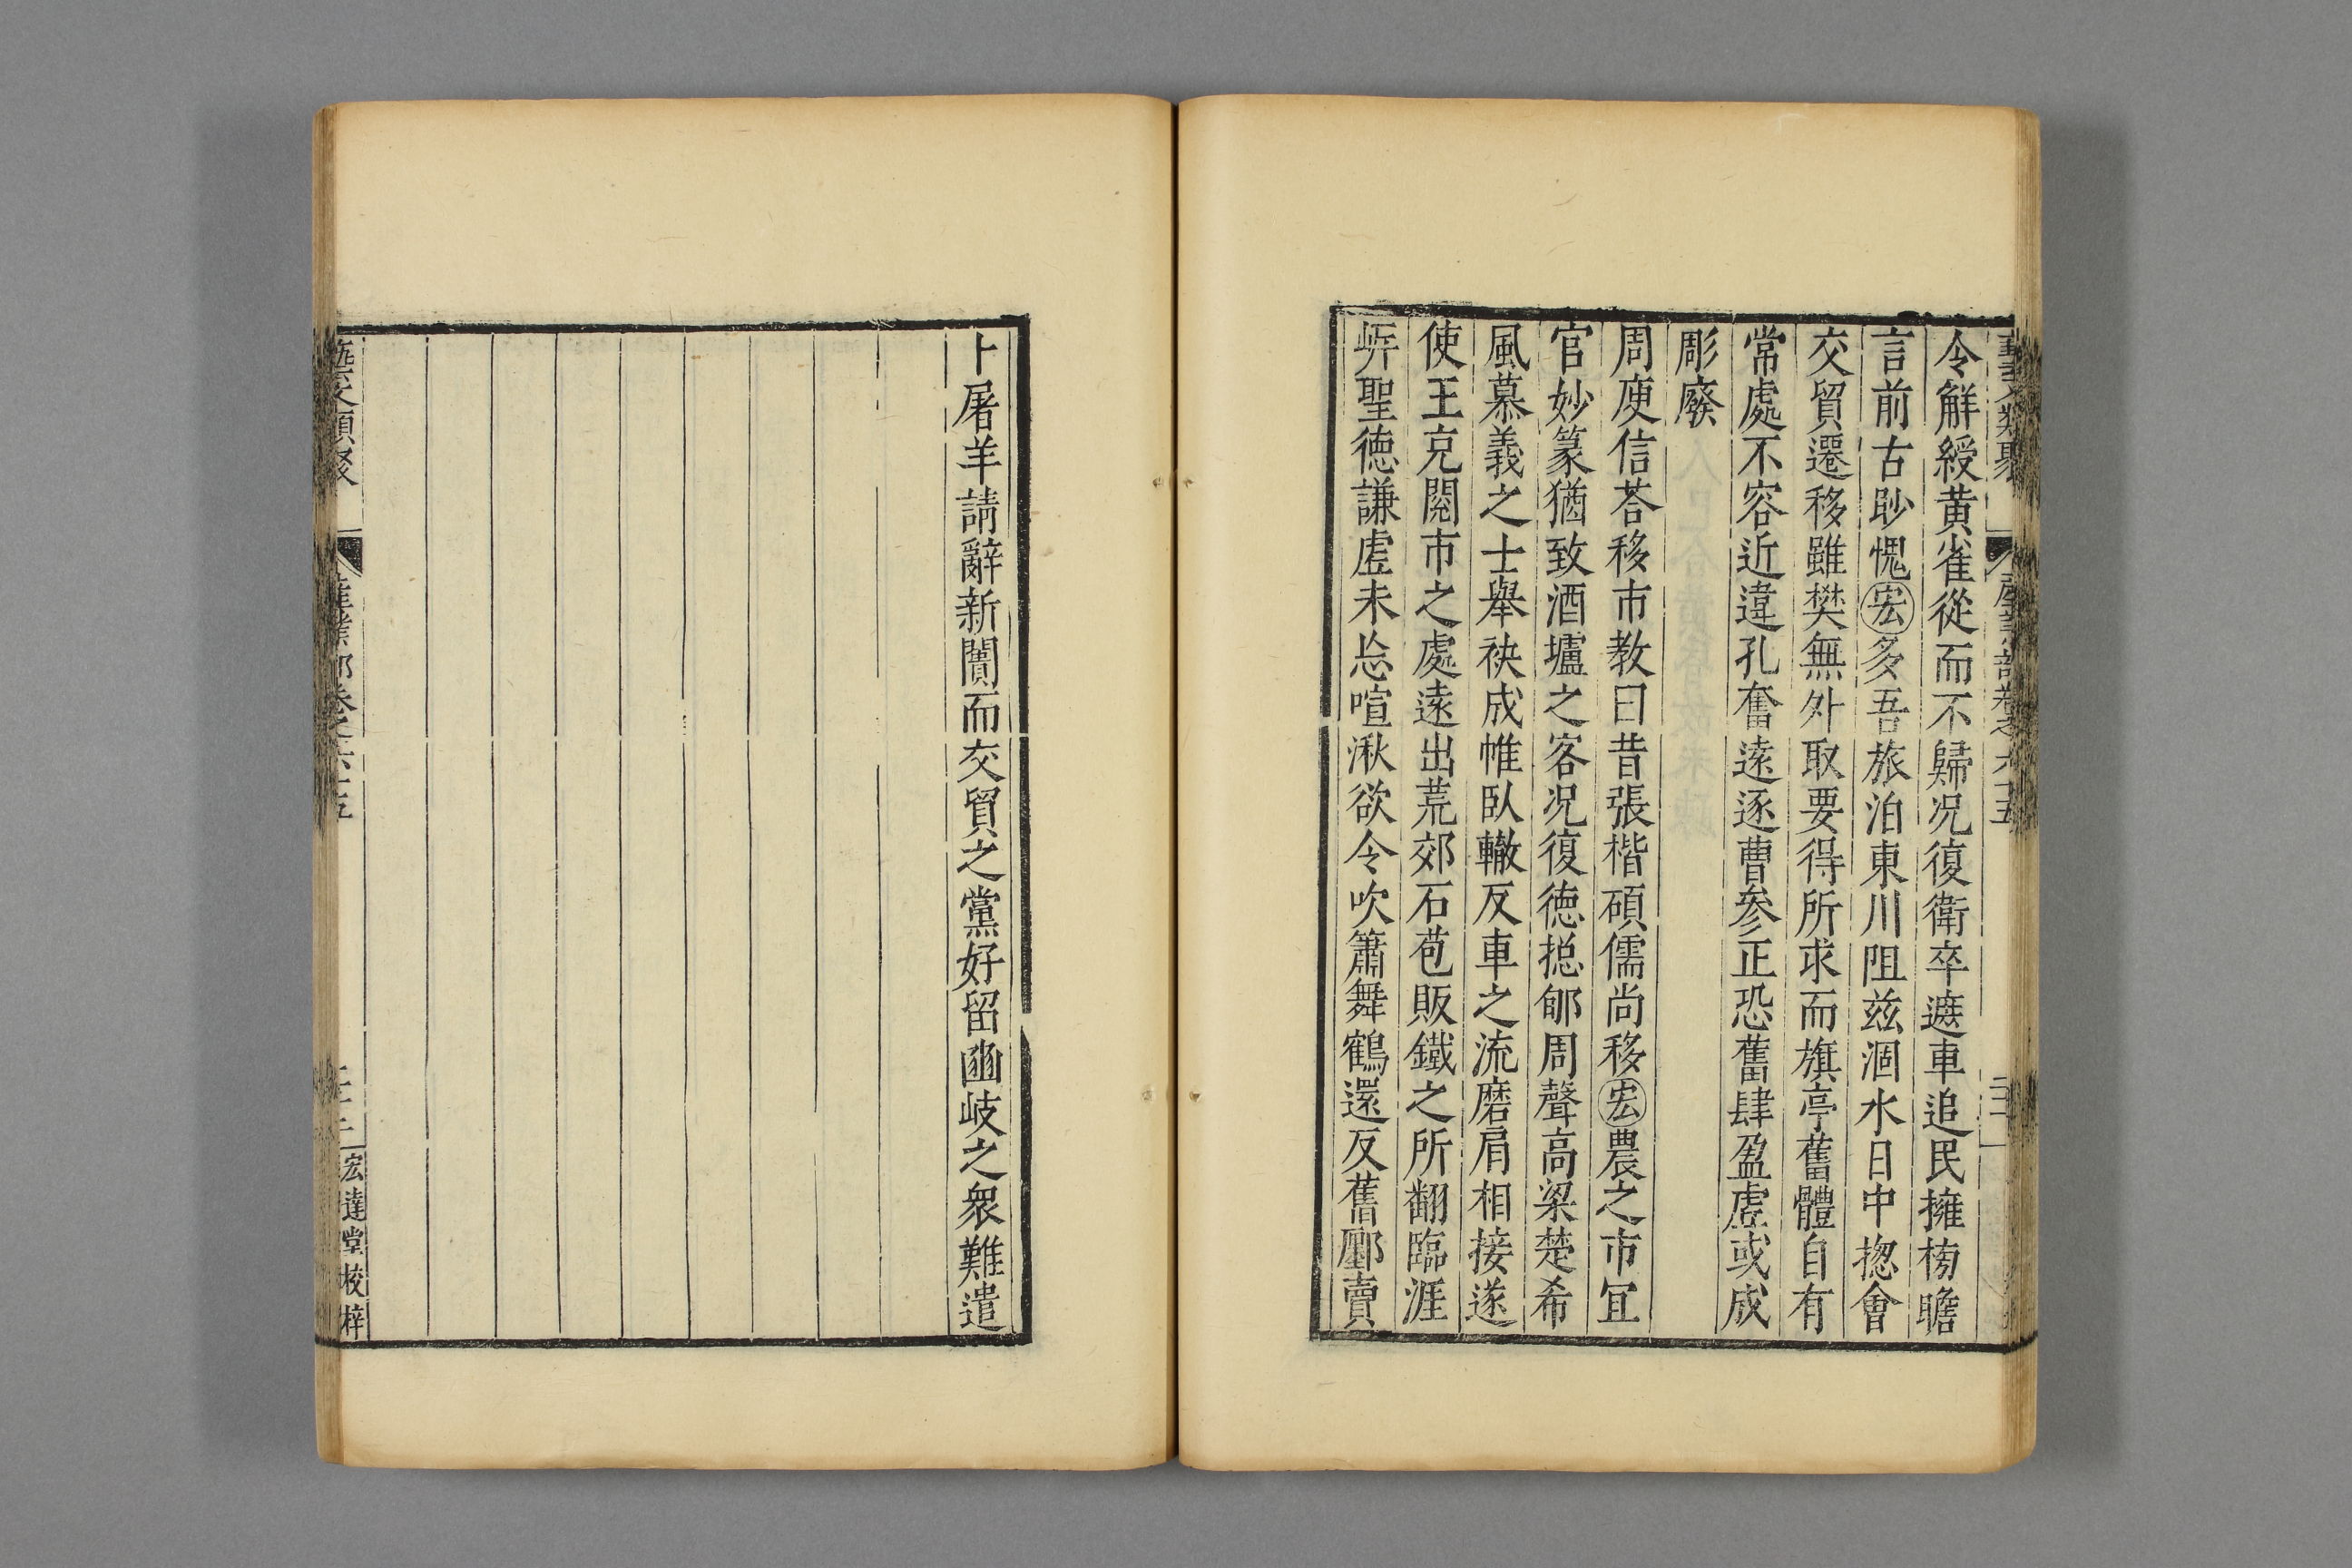 令觧綬黄雀從而不歸况復衛卒遮車追民擁榜瞻
言前古眇愧宏多吾旅泊東川阻兹涸水日中揔會
交貿遷移雖樊無外取要得所求而旗亭舊體自有
常處不容近違孔奮遠逐曹参正恐舊肆盈虚或成
彫廢
周庾信荅移市教曰昔張楷碩儒尚移宏農之市冝
官妙篆猶致酒壚之客况復德揔郇周聲高梁楚希
風慕義之士舉袂成帷臥轍反車之流磨肩相接遂
使王充閱市之處遠出荒郊石苞販鐵之所翻臨涯
岸聖德謙虚未忘喧湫欲令吹簫舞鶴還反舊鄽賣
卜屠羊請辭新闠而交貿之黨好留豳岐之衆難遣
藝文類聚
產業部卷之六十五
宏達堂校梓